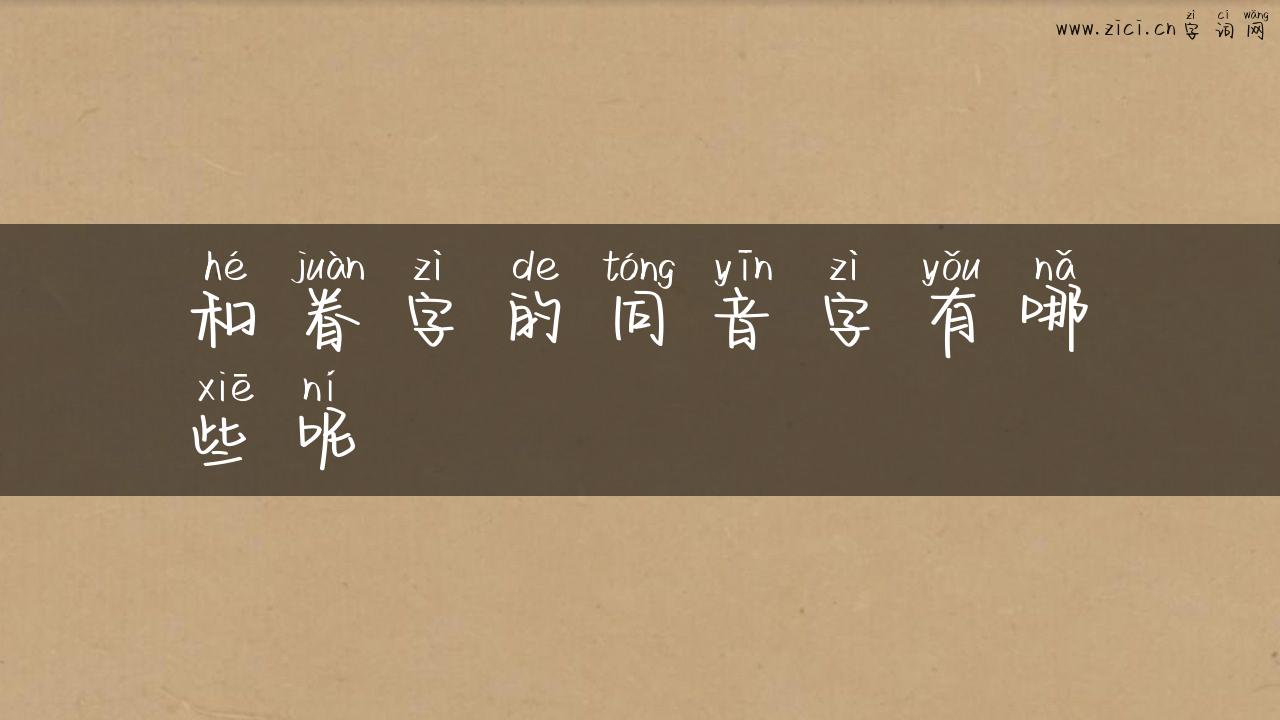 zì cí wǎng
www.zici.cn 字词网
hé juàn zì de tóng yīn zì yǒu nǎ
和眷字的同音字有哪
xiē ní
些呢